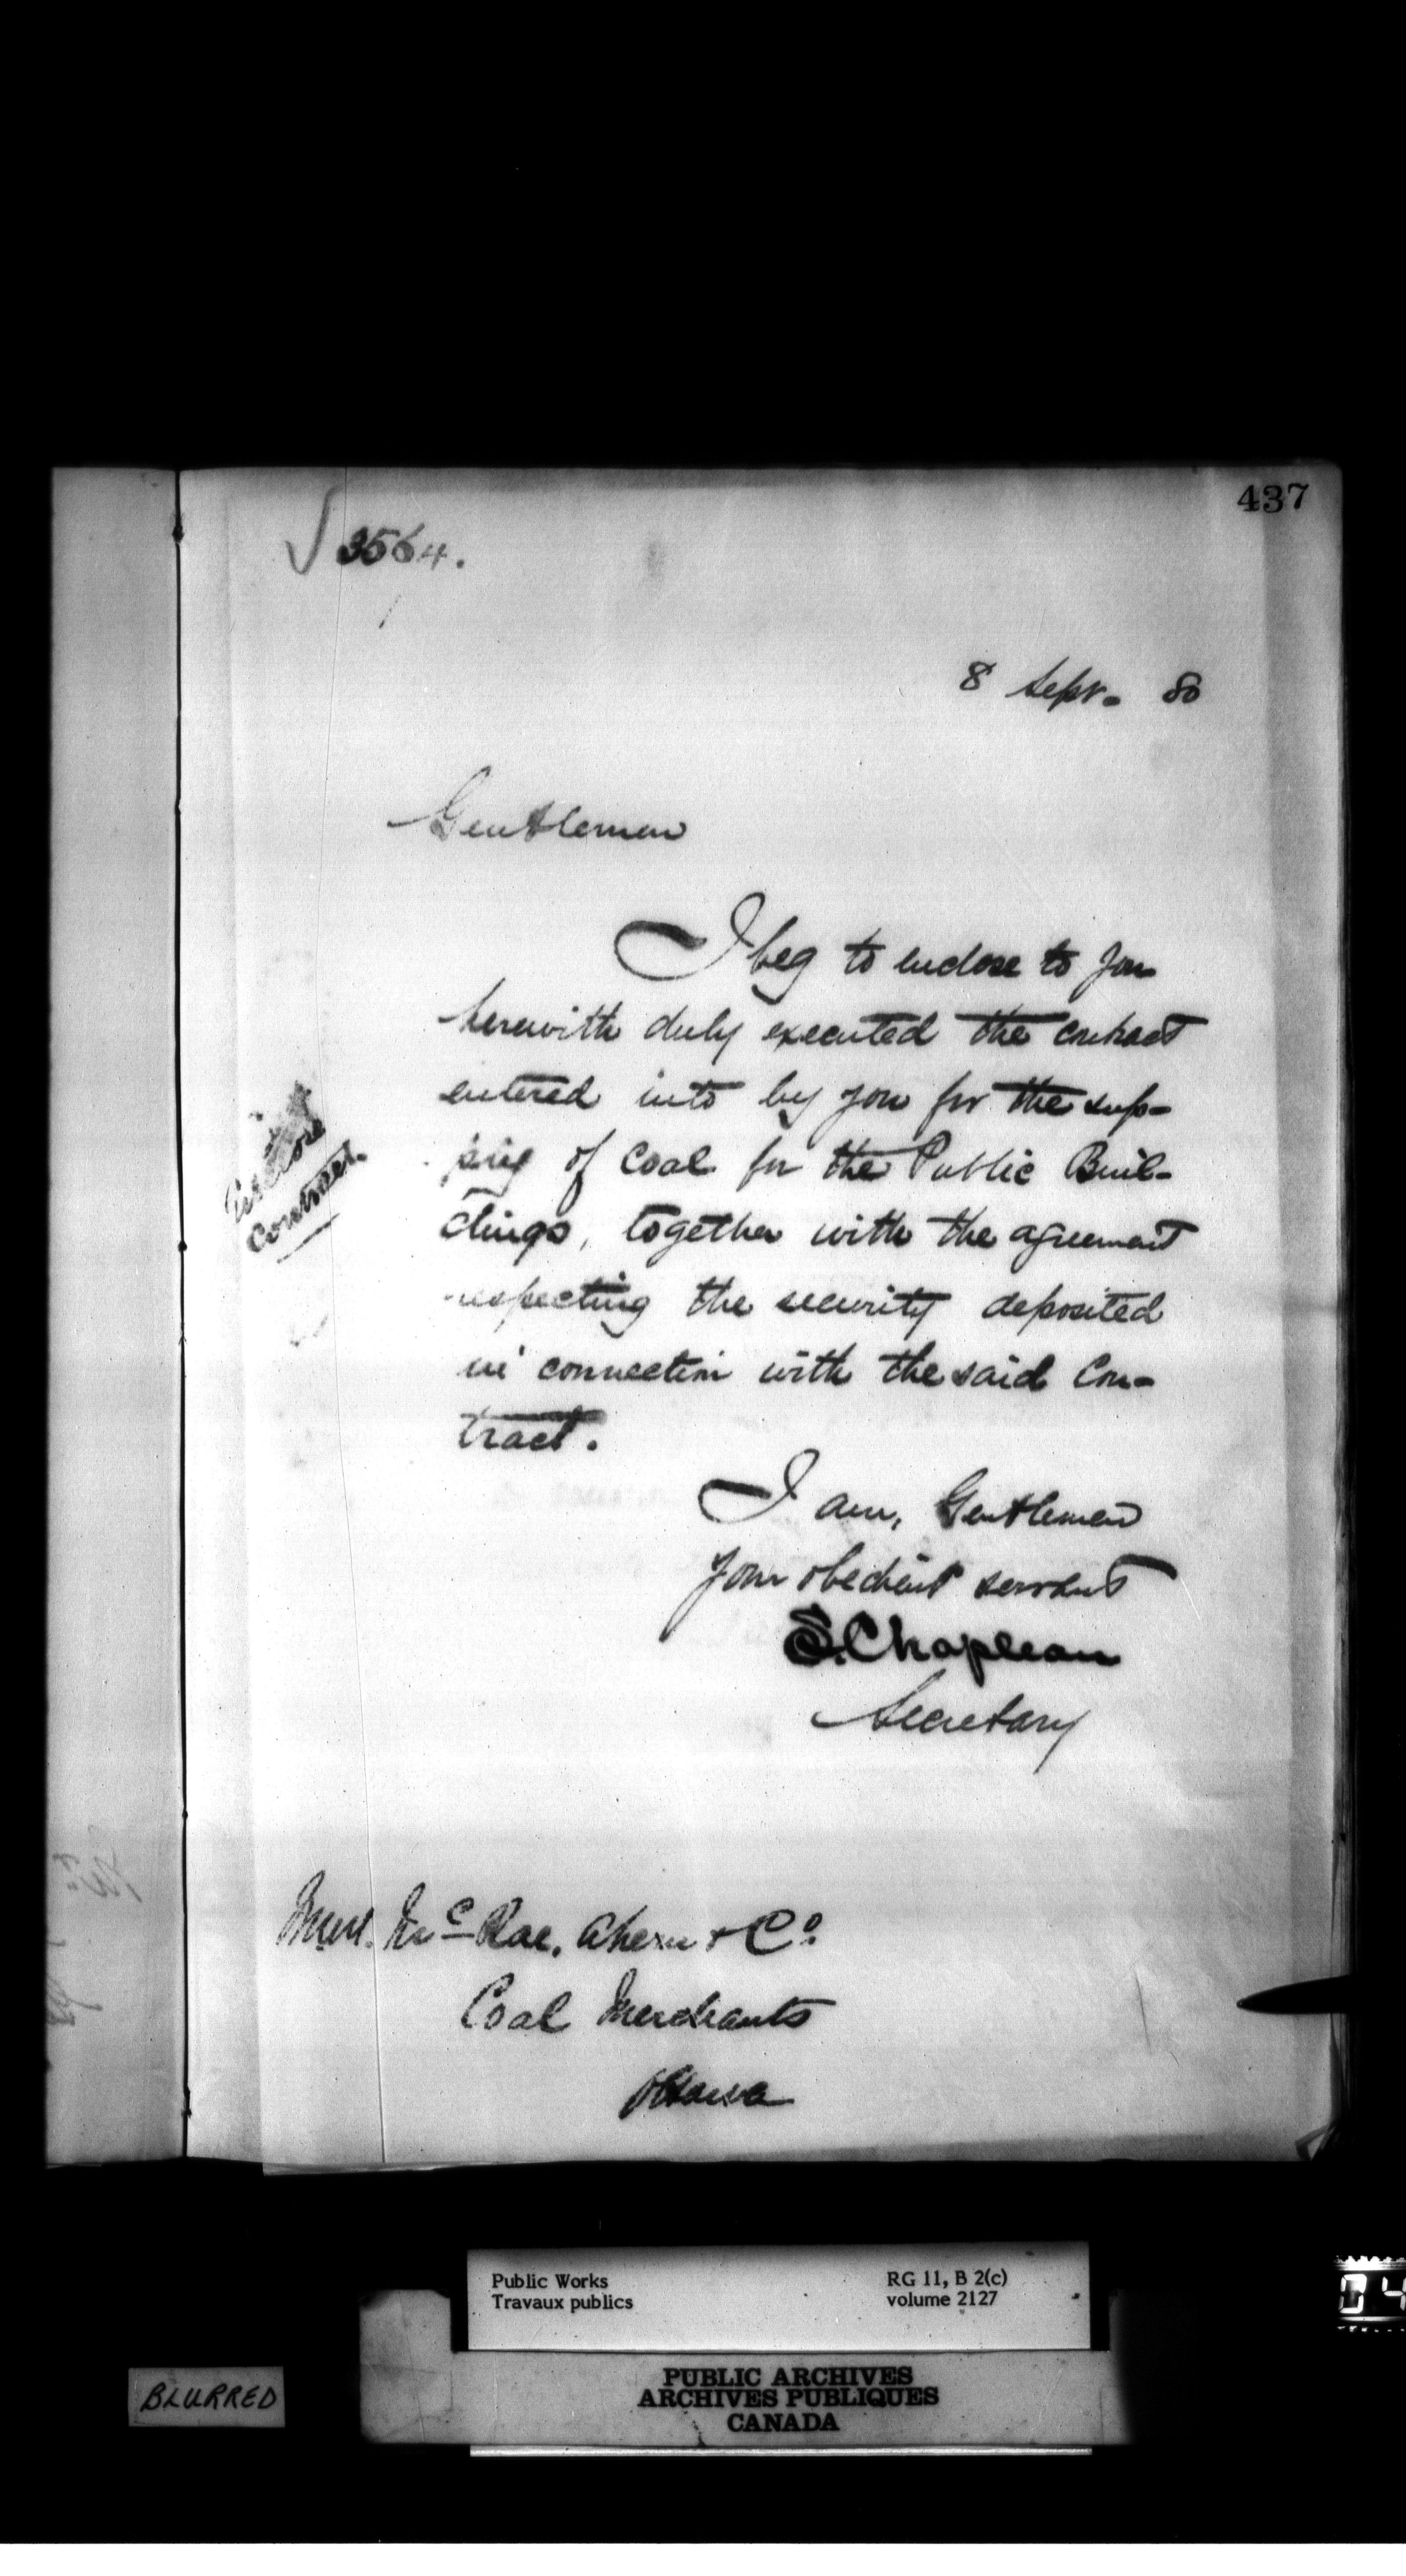 437
3564.
8 Sept. 80
Gentlemen
I beg to enclose to you
herewith duly executed the contract
entered into by you for the sup-
plying of Coal for the Public Buil-
dings, together with the agreement
respecting the security deposited
in connection with the said Con-
tract.
Enclose
Contract.
I am, Gentlemen
Your obedient servant
S. Chapleau
Secretary
Messrs. McRae, Ahern & Co.
Coal Merchants
Ottawa
Public Works
Travaux publics
RG 11, B 2(c)
volume 2127
PUBLIC ARCHIVES
ARCHIVES PUBLIQUES
CANADA
BLURRED
04